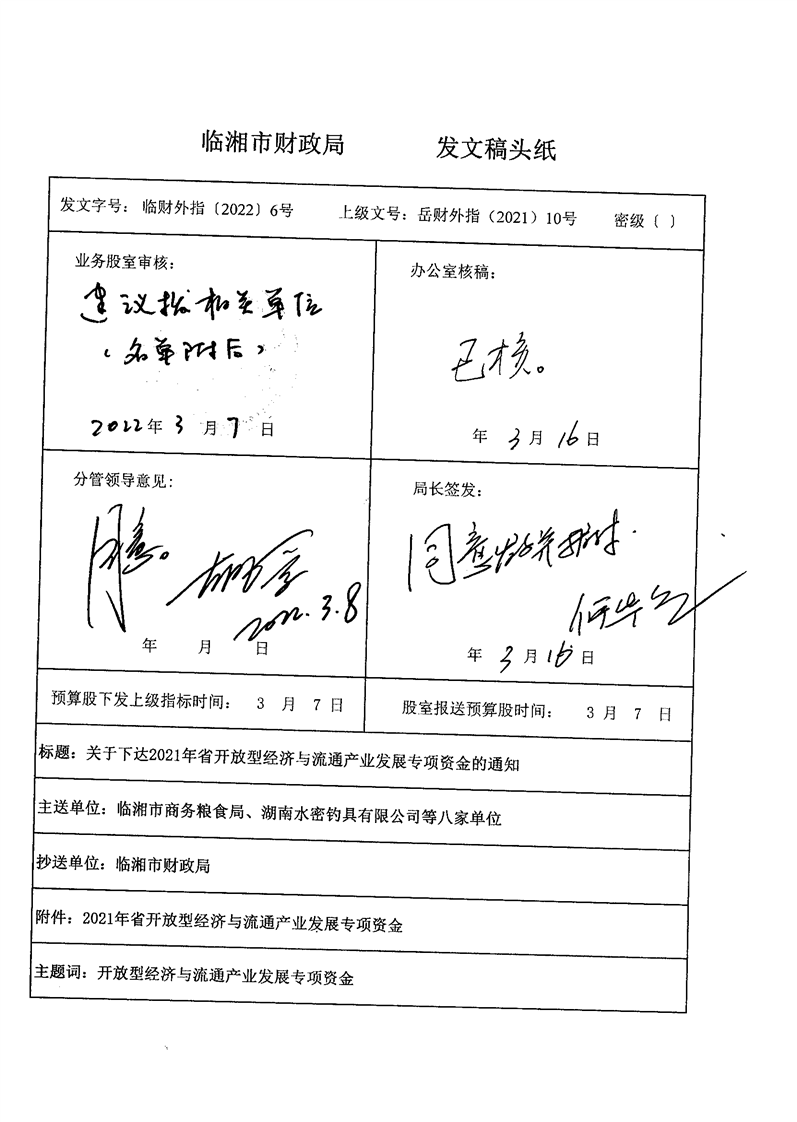 临湘市财政局 发文稿头纸
发文字号：临财外指〔2022〕6号 上级文号：岳财外指（2021）10号 密级〔 〕
业务股室审核：
建议拨相关单位
（名单附后）
2022年3月7日
办公室核稿：
已核。
年3月16日
分管领导意见：
同意。
2022.3.8
年 月 日
局长签发：
同意
年3月16日
预算股下发上级指标时间： 3 月 7 日
股室报送预算股时间： 3 月 7 日
标题：关于下达2021年省开放型经济与流通产业发展专项资金的通知
主送单位：临湘市商务粮食局、湖南水密钓具有限公司等八家单位
抄送单位：临湘市财政局
附件：2021年省开放型经济与流通产业发展专项资金
主题词：开放型经济与流通产业发展专项资金